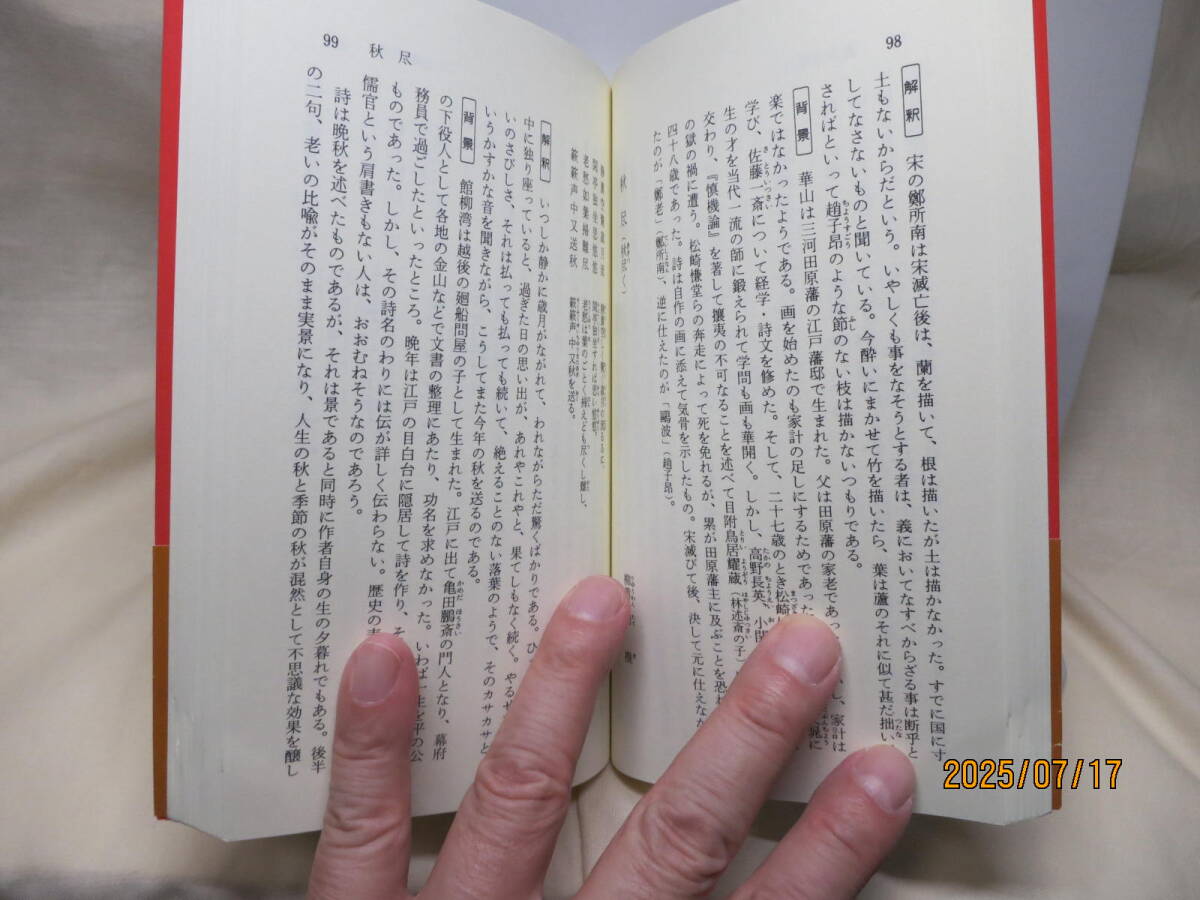 98
解釈 宋の鄭所南は宋滅亡後は、蘭を描いて、根は描いたが土は描かなかった。すでに国に寸
土もないからだという。いやしくも事をなそうとする者は、義においてなすべからざる事は断乎と
してなさないものと聞いている。今酔いにまかせて竹を描いたら、葉は蘆のそれに似て甚だ拙い
さればといって趙子昂のような節のない枝は描かないつもりである。
背景 華山は三河田原藩の江戸藩邸で生まれた。父は田原藩の家老であっ し、家計は
楽ではなかったようである。画を始めたのも家計の足しにするためであった
学び、佐藤一斎について経学・詩文を修めた。そして、二十七歳のとき松崎
生の才を当代一流の師に鍛えられて学問も画も華開く。しかし、高野長英、小関
交わり、『慎機論』を著して攘夷の不可なることを述べて目附鳥居耀蔵(林述斎の子)
の獄の禍に遭う。松崎慊堂らの奔走によって死を免れるが、累が田原藩主に及ぶことを恐れ
四十八歳であった。詩は自作の画に添えて気骨を示したもの。宋滅びて後、決して元に仕えなか
ったのが「鄭老」(鄭所南)、逆に仕えたのが「鷗波」(趙子昂)。
秋尽(秋尽く)
99 秋尽
閑亭独坐思悠悠
老愁如葉掃難尽
蔌蔌声中又送秋
老愁は葉のごとく掃えども尽くし難し、
蔌蔌声中又秋を送る。
解釈 いつしか静かに歳月がながれて、われながらただ驚くばかりである。ひ
中に独り座っていると、過ぎた日の思い出が、あれやこれやと、果てしもなく続く。やるせ
いのさびしさ、それは払っても払っても続いて、絶えることのない落葉のようで、そのカサカサと
いうかすかな音を聞きながら、こうしてまた今年の秋を送るのである。
背景 館柳湾は越後の廻船問屋の子として生まれた。江戸に出て亀田鵬斎の門人となり、幕府
の下役人として各地の金山などで文書の整理にあたり、功名を求めなかった。いわば一生を平の公
務員で過ごしたといったところ。晩年は江戸の目白台に隠居して詩を作り、そ
ものであった。しかし、その詩名のわりには伝が詳しく伝わらない。歴史の表
儒官という肩書きもない人は、おおむねそうなのであろう。
詩は晩秋を述べたものであるが、それは景であると同時に作者自身の生の夕暮れでもある。後半
の二句、老いの比喩がそのまま実景になり、人生の秋と季節の秋が混然として不思議な効果を醸し
2025/07/17